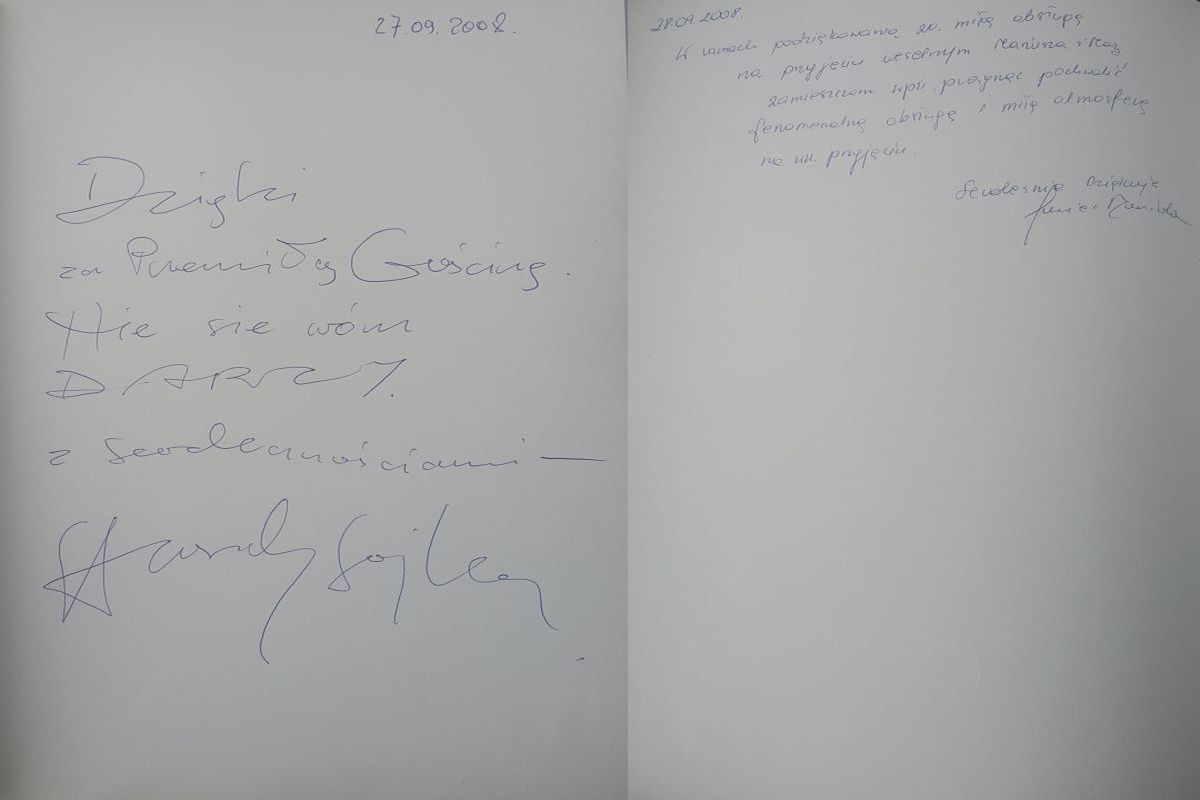 27.09.2008.
Dzięki
za Przemiłą Gościnę.
Nie sie wóm
DARZY.
z serdecznościami —
28.09.2008.
W ramach podziękowania za miłą obsługę
na przyjęciu weselnym Mariusza i
zamieszczam wpis pragnąc pochwalić
fenomenalną obsługę i miłą atmosferę
na ww. przyjęciu.
Serdecznie Dziękuję